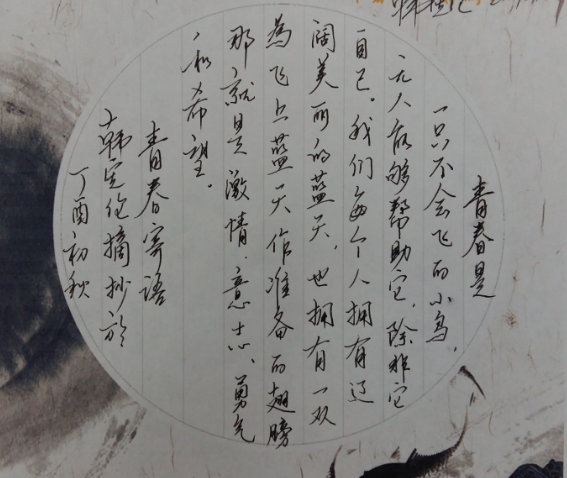 青春是
一只不会飞的小鸟，
无人能够帮助它，除非它
自己。我们每个人拥有辽
阔美丽的蓝天，也拥有一双
為飞上蓝天作准备的翅膀
那就是激情、意志、勇气
和希望。
青春寄语
韩定伦摘抄於
丁酉初秋